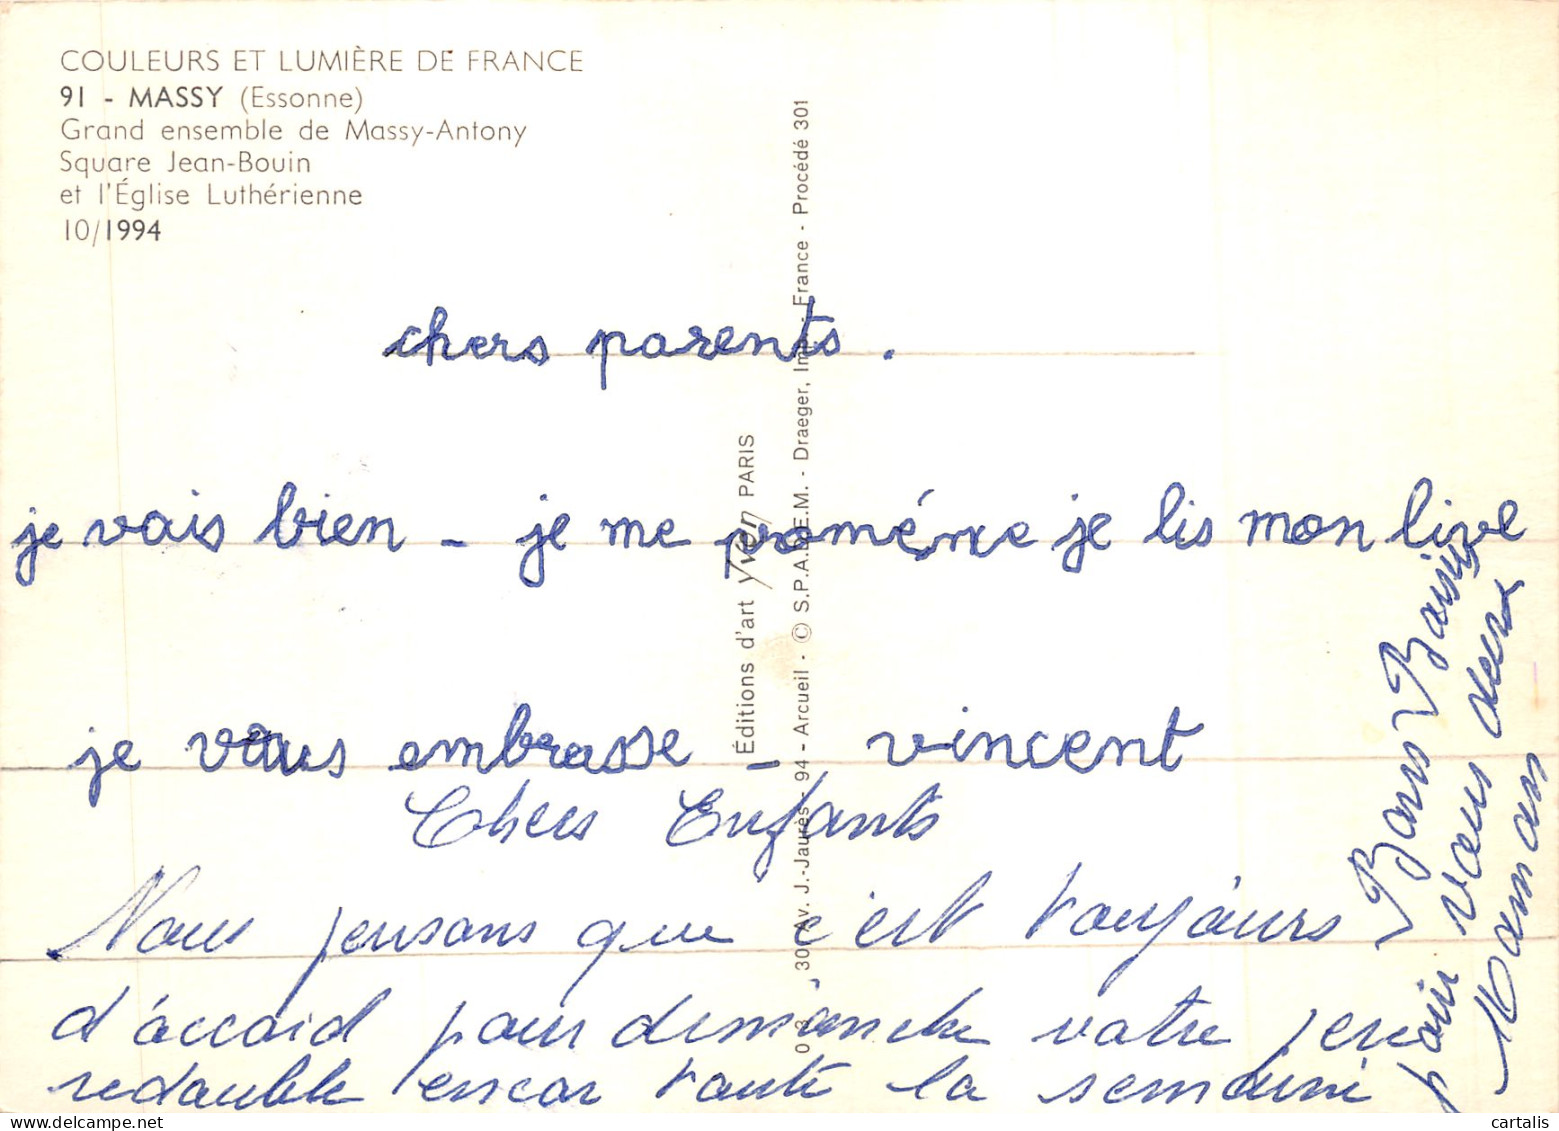 COULEURS ET LUMIÈRE DE FRANCE
91 - MASSY (Essonne)
Grand ensemble de Massy-Antony
Square Jean-Bouin
et l'Église Luthérienne
10/1994
chers parents.
je vais bien - je me promène je lis mon live
je vous embrasse - vincent
Chers Enfants
Nous pensons que c'est toujours
d'accord pour dimanche votre pere
redouble encor toute la semaine
Bons Baisers
pour vous deux
Maman
Éditions d'art Yvon PARIS
30, Av. J.-Jaurès - 94 - Arcueil - © S.P.A.D.E.M. - Draeger, Imp. France - Procédé 301
cartalis